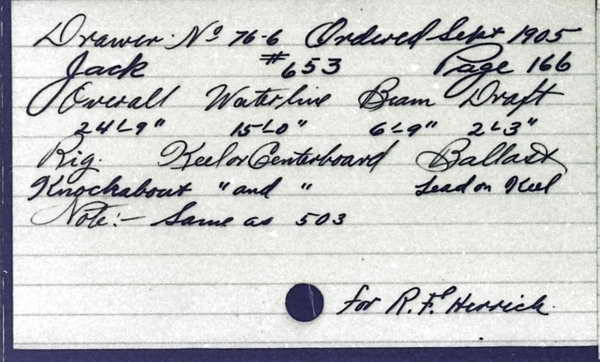 Drawer Nº 76-6 Ordered Sept 1905
Jack #653 Page 166
Overall Waterline Beam Draft
24'-9" 15'-0" 6'-9" 2'-3"
Rig. Keel or Centerboard Ballast
Knockabout " and " Lead on Keel
Note:- Same as 503
for R. F. Herrick.